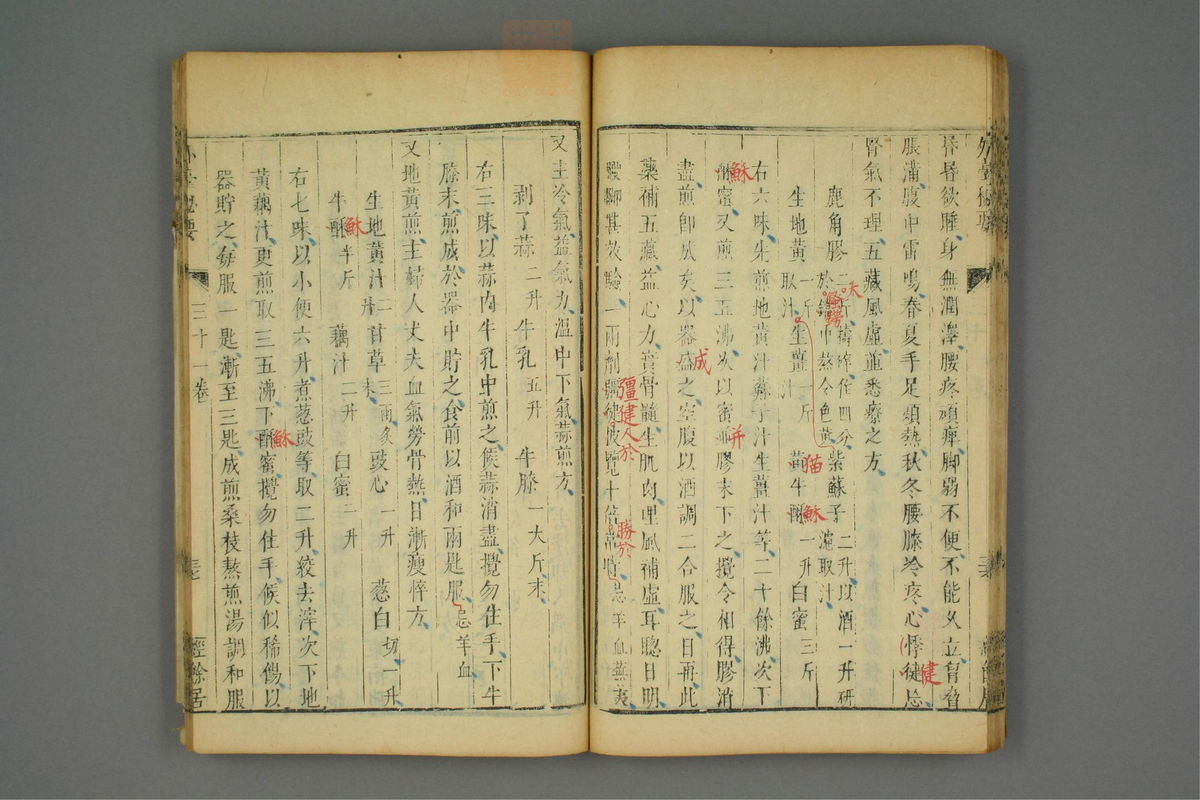 外臺秘要
昏昏欲睡身無潤澤腰疼頑痺脚弱不便不能久立胷脅
脹滿腹中雷鳴春夏手足煩熱秋冬腰膝冷疼心悸徤忘
健
腎氣不理五藏風虛並悉療之方
鹿角膠 紫蘇子 二升以酒一升研濾取汁
生地黃 一斤取汁 生薑一斤汁 黃牛酥一升 白蜜三斤
猫
酥
右六味先煎地黃汁蘇子汁生薑汁等二十餘沸次下
酥蜜又煎三五沸次以蜜並膠末下之攪令相得膠消
酥
并
盡煎即成矣以器盛之空腹以酒調二合服之日再此
成
藥補五藏益心力實骨髓生肌肉理風補虛耳聰目明
腰脚甚效驗一兩劑 徤 十倍常 忌羊血蕪荑
彊健人於
勝於
又主冷氣益氣力溫中下氣蒜煎方
剥了蒜二升 牛乳五升 牛膝一大斤末
右三味以蒜內牛乳中煎之候蒜消盡攪勿住手下牛
膝末煎成於器中貯之食前以酒和兩匙服忌羊血
又地黃煎主婦人丈夫血氣勞骨熱日漸瘦悴方
生地黃汁二升 甘草三兩炙末 豉心一升 葱白切一升
牛酥半斤 藕汁二升 白蜜一升
酥
右七味以小便六升煮葱豉等取二升絞去滓次下地
黃藕汁更煎取三五沸下酥蜜攪勿住手候似稀餳以
酥
器貯之每服一匙漸至三匙成煎桑枝熬煎湯調和服
外臺秘要 三十一卷 經餘居